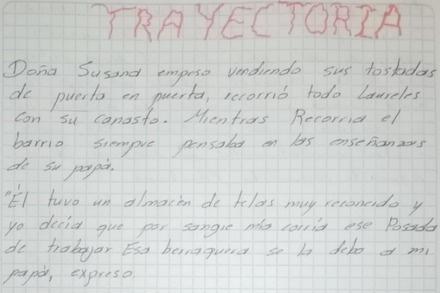 TRAYECTORIA
Doña Susana empeso vendiendo sus tostadas
de puerta en puerta, recorrió todo Laureles
con su canasto. Mientras Recorria el
barrio siempre pensaba en las enseñanzas
de su papá.
"Él tuvo un almacén de telas muy reconocido y
yo decia que por sangre mia corria ese Posada
de trabajar Esa berraquera se la debo a mi
papá, expreso